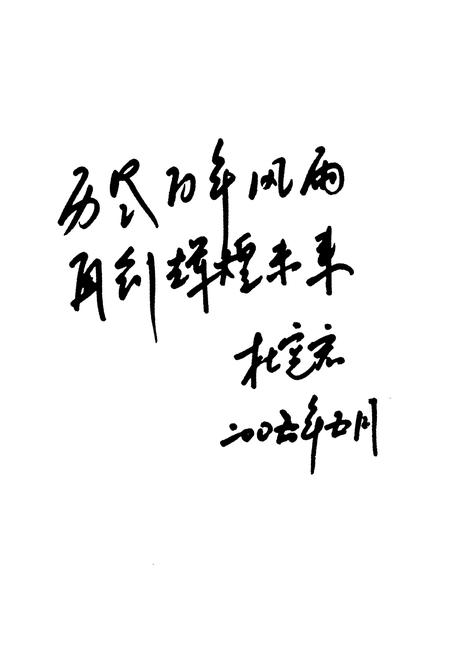 历尽百年风雨
再创辉煌未来
杜宝君
二〇〇六年五月